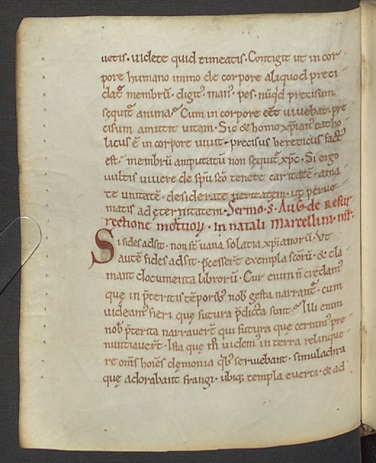 uetis. uidete quid timeatis. Contigit ut in cor
pore humano immo de corpore aliquod preci
dat͛ membrū. digit᷒. man᷒. pes. nūqd precisum
sequit͛ anima. Cum in corpore eēt uiuebat. pre
cisum amittit uitam. Sic & homo xpian᷒ catho
licus ē in corpore uiuit. precisus hereticus fact᷒
est. membrū amputatū non sequit͛ sp̄c. Si ergo
uultis uiuere de spū sc̄o tenete caritatē. ama
te unitatē. desiderate ueritatem. ut perue
niatis ad eternitatem. Sermo S. Aug. de Resur
rectione mortuorꝝ. In natali Marcellini mr̄.
Si fides adsit. non st̄ uana solatia xpianorū. Ut
autē fides adsit. p̄cessert̄ exempla sc̄orū. & cla
mant documenta librorū. Cur enim n̄ credam᷒
quę in p̄teritis tēporib᷒ nob̄ gesta narrant͛. cum
uideam᷒ fieri quę futura p̄dicta sunt. Illi enim
nob̄ p̄terita narrauert̄ qui futura quę cernim᷒ pre
nuntiauert̄. Ista quę m̄ uidem᷒ in terra relinque
re om̄s hoīes demonia qb᷒ seruiebant. simulachra
quę adorabant frangi. ubiq; templa euerti. & ad